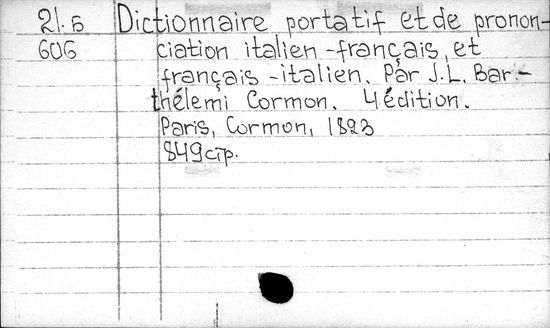 21.б Dictionnaire portatif et de pronon-
606 ciation italien-français, et
français-italien. Par J.L. Bar-
thélemi Cormon. 4 édition.
Paris, Cormon, 1823
849 стр.